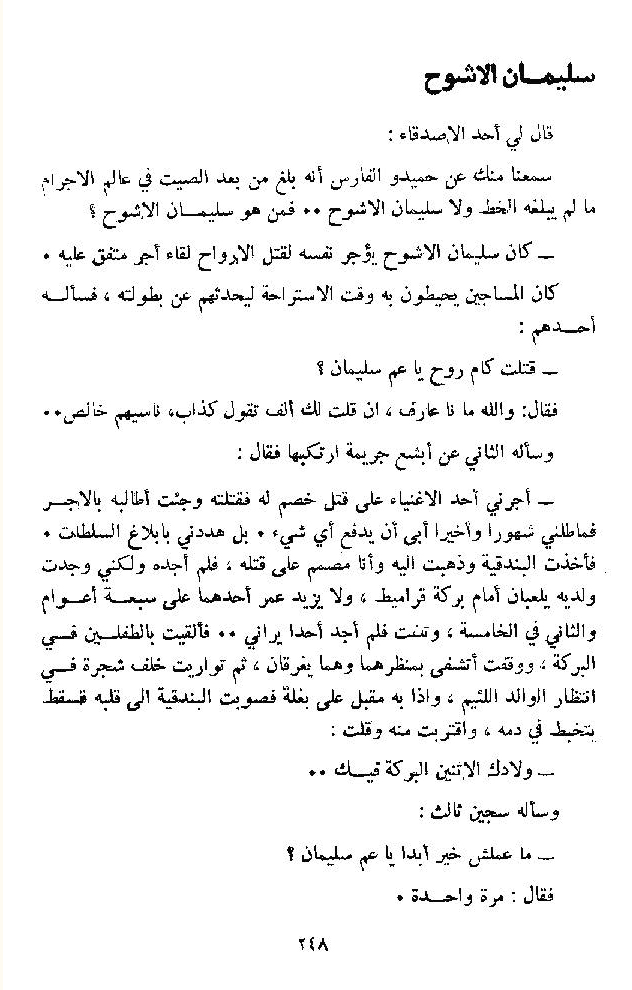 سليمان الاشوح
قال لي أحد الاصدقاء :
سمعنا منك عن حميدو الفارس أنه بلغ من بعد الصيت في عالم الاجرام
ما لم يبلغه الخط ولا سليمان الاشوح ٠٠ فمن هو سليمان الاشوح ؟
ــ كان سليمان الاشوح يؤجر نفسه لقتل الارواح لقاء أجر متفق عليه ٠
كان المساجين يحيطون به وقت الاستراحة ليحدثهم عن بطولته ، فسأله
أحدهم :
ــ قتلت كام روح يا عم سليمان ؟
فقال: والله ما نا عارف ، ان قلت لك ألف تقول كذاب، ناسيهم خالص٠٠
وسأله الثاني عن أبشع جريمة ارتكبها فقال :
ــ أجرني أحد الاغنياء على قتل خصم له فقتلته وجئت أطالبه بالاجر
فماطلني شهورا وأخيرا أبى أن يدفع أي شيء ٠ بل هددني بابلاغ السلطات ٠
فأخذت البندقية وذهبت اليه وأنا مصمم على قتله ، فلم أجده ولكني وجدت
ولديه يلعبان أمام بركة قراميط ، ولا يزيد عمر أحدهما على سبعة أعوام
والثاني في الخامسة ، وتلفت فلم أجد أحدا يراني ٠٠ فألقيت بالطفلين في
البركة ، ووقفت أتشفى بمنظرهما وهما يغرقان ، ثم تواريت خلف شجرة في
انتظار الوالد اللئيم ، واذا به مقبل على بغلة فصوبت البندقية الى قلبه فسقط
يتخبط في دمه ، واقتربت منه وقلت :
ــ ولادك الاتنين البركة فيك ٠٠
وسأله سجين ثالث :
ــ ما عملش خير أبدا يا عم سليمان ؟
فقال : مرة واحدة ٠
٢٤٨